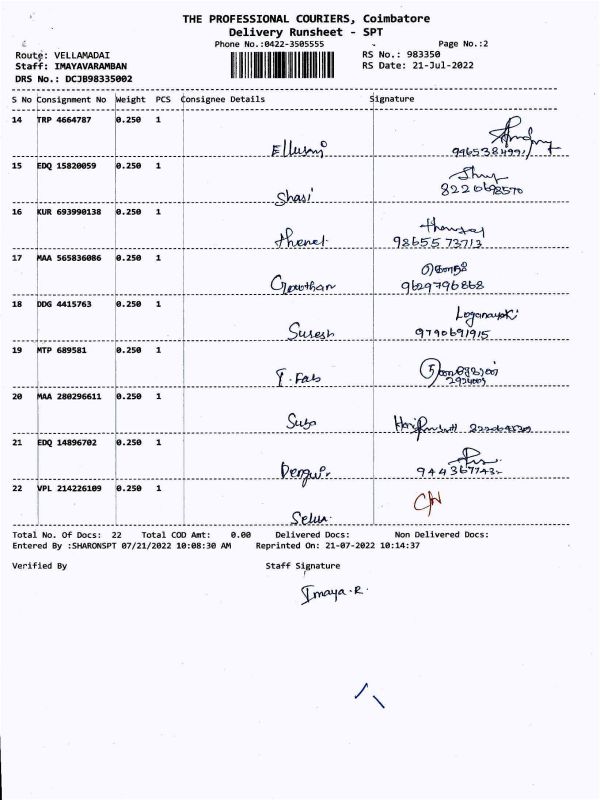 THE PROFESSIONAL COURIERS, Coimbatore
Delivery Runsheet - SPT
Phone No.:0422-3505555 Page No.:2
Route: VELLAMADAI RS No.: 983350
Staff: IMAYAVARAMBAN RS Date: 21-Jul-2022
DRS No.: DCJB98335002
S No Consignment No Weight PCS Consignee Details Signature
14 TRP 4664787 0.250 1
15 EDQ 15820059 0.250 1
Shasi
16 KUR 693990138 0.250 1
98655 73713
17 MAA 565836086 0.250 1
Gowthan 9629796868
18 DDG 4415763 0.250 1
Loganayaki
Suresh 9790691915
19 MTP 689581 0.250 1
20 MAA 280296611 0.250 1
21 EDQ 14896702 0.250 1
22 VPL 214226109 0.250 1
Total No. Of Docs: 22 Total COD Amt: 0.00 Delivered Docs: Non Delivered Docs:
Entered By :SHARONSPT 07/21/2022 10:08:30 AM Reprinted On: 21-07-2022 10:14:37
Verified By Staff Signature
Imaya.R.